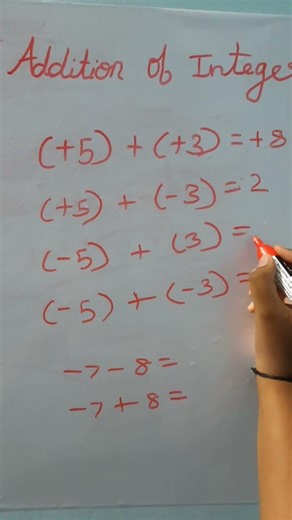 Addition of Intege
(+5) + (+3) = +8
(+5) + (-3) = 2
(-5) + (3) =
(-5) + (-3) =
-7 - 8 =
-7 + 8 =